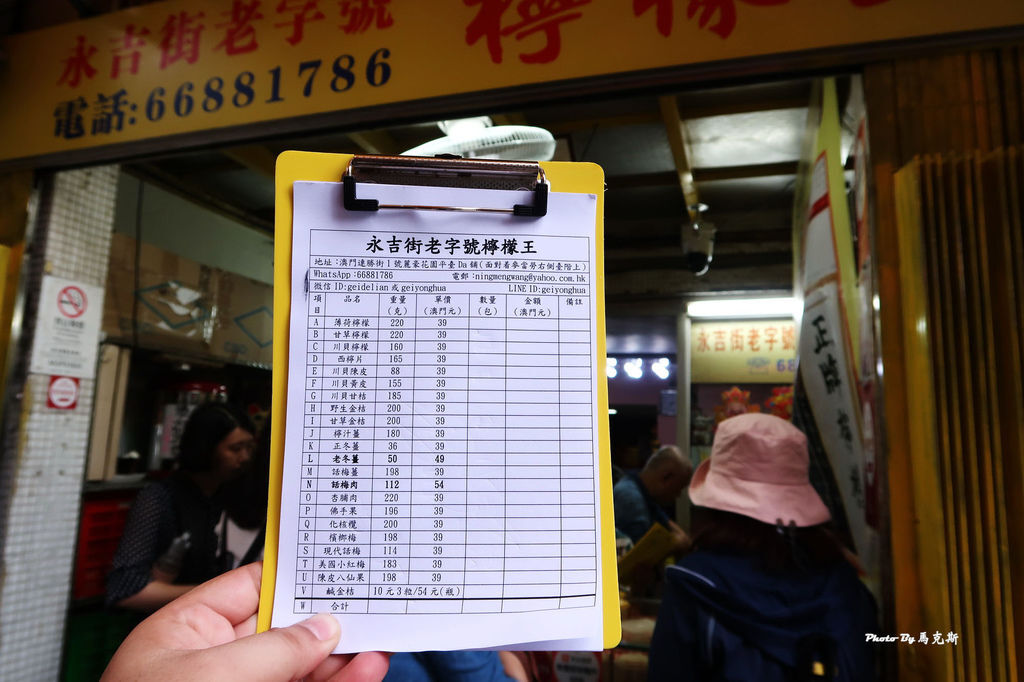 永吉街老字號檸檬王
電話:66881786
永吉街老字號檸檬王
地址:澳門連勝街1號麗豪花園平臺Da鋪(面對着麥當勞右側臺階上)
WhatsApp:66881786 電郵:ningmengwang@yahoo.com.hk
微信ID:geidelian或geiyonghua LINE ID:geiyonghua
項目 品名 重量(克) 單價(澳門元) 數量(包) 金額(澳門元) 備註
A 薄荷檸檬 220 39
B 甘草檸檬 220 39
C 川貝檸檬 160 39
D 西檸片 165 39
E 川貝陳皮 88 39
F 川貝黃皮 155 39
G 川貝甘桔 185 39
H 野生金桔 200 39
I 甘草金桔 200 39
J 檸汁薑 180 39
K 正冬薑 36 39
L 老冬薑 50 49
M 話梅薑 198 39
N 話梅肉 112 54
O 杏脯肉 220 39
P 佛手果 196 39
Q 化核欖 200 39
R 檳榔梅 198 39
S 現代話梅 114 39
T 美國小紅梅 183 39
U 陳皮八仙果 198 39
V 鹹金桔 10元3粒/54元(瓶)
W 合計
永吉街老字號
68
正臨
Photo By 馬克斯